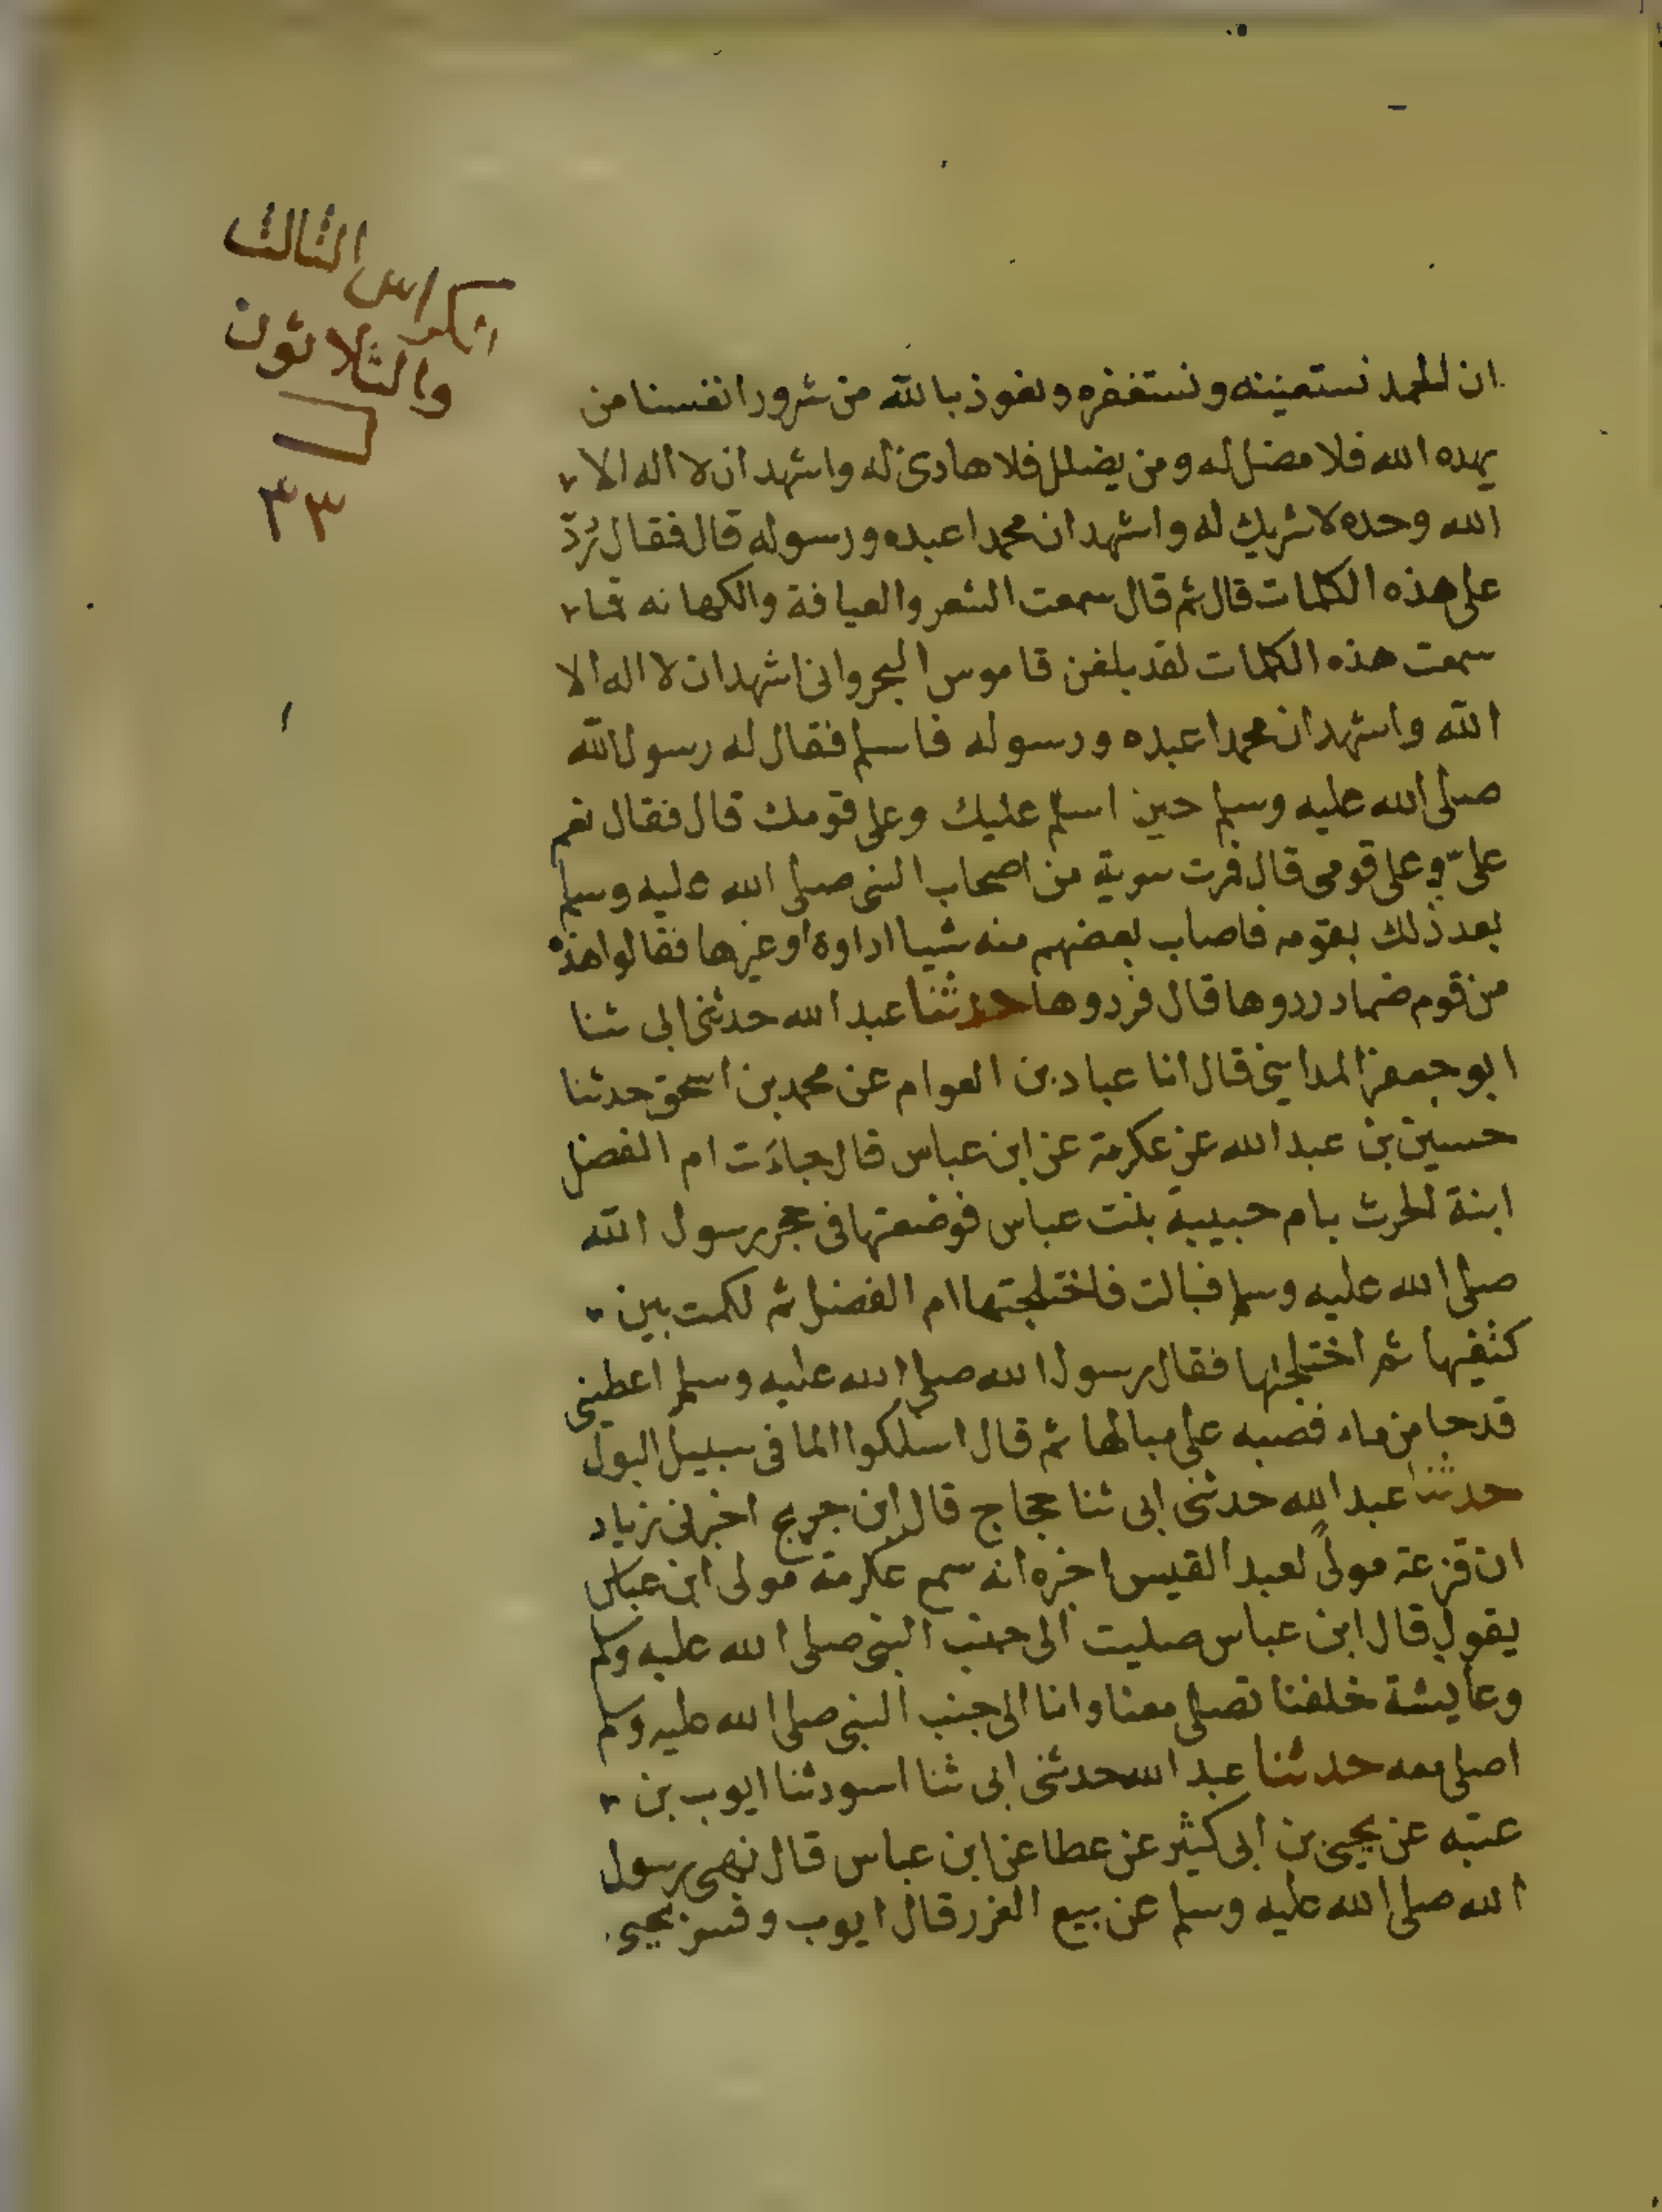 الكراس الثالث
والثلاثون
٣٣
ان الحمد نستعينه ونستغفره ونعوذ بالله من شرور انفسنا من
يهده الله فلا مضل له ومن يضلل فلا هادى له واشهد ان لا اله الا
الله وحده لا شريك له واشهد ان محمدا عبده ورسوله قال فقال رُدّ
على هذه الكلمات قال ثم قال سمعت الشعر والعيافة والكهانه فما
سمعت هذه الكلمات لقد بلغن قاموس البحر وانى اشهد ان لا اله الا
الله واشهد ان محمدا عبده ورسوله فاسلم فقال له رسول الله
صلى الله عليه وسلم حين اسلم عليك وعلى قومك قال فقال نعم
علىّ وعلى قومى قال فمرت سرية من اصحاب النبى صلى الله عليه وسلم
بعد ذلك بقومه فاصاب بعضهم منه شيا اداوة او غيرها فقالوا هذه
من قوم ضماد ردوها قال فردوها حدثنا عبد الله حدثنى ابى ثنا
ابو جعفر المداينى قال انا عباد بن العوام عن محمد بن اسحق حدثنا
حسين بن عبد الله عن عكرمة عن ابن عباس قال جاءت ام الفضل
ابنة الحرث بام حبيبة بنت عباس فوضعتها فى حجر رسول الله
صلى الله عليه وسلم فبالت فاختلجتها ام الفضل ثم لكمت بين
كتفيها ثم اختلجتها فقال رسول الله صلى الله عليه وسلم اعطينى
قدحا من ماء فصبه على مبالها ثم قال اسلكوا الما فى سبيل البول
حدثنا عبد الله حدثنى ابى ثنا حجاج قال ابن جريج اخبرنى زياد
ان قزعة مولىً لعبد القيس اخبره انه سمع عكرمة مولى ابن عباس
يقول قال ابن عباس صليت الى جنب النبى صلى الله عليه وسلم
وعايشة خلفنا تصلى معنا وانا الى جنب النبى صلى الله عليه وسلم
اصلى معه حدثنا عبد الله حدثنى ابى ثنا اسود ثنا ايوب بن
عتبه عن يحيى بن ابى كثير عن عطا عن ابن عباس قال نهى رسول
الله صلى الله عليه وسلم عن بيع الغرر قال ايوب وفسر يحيى